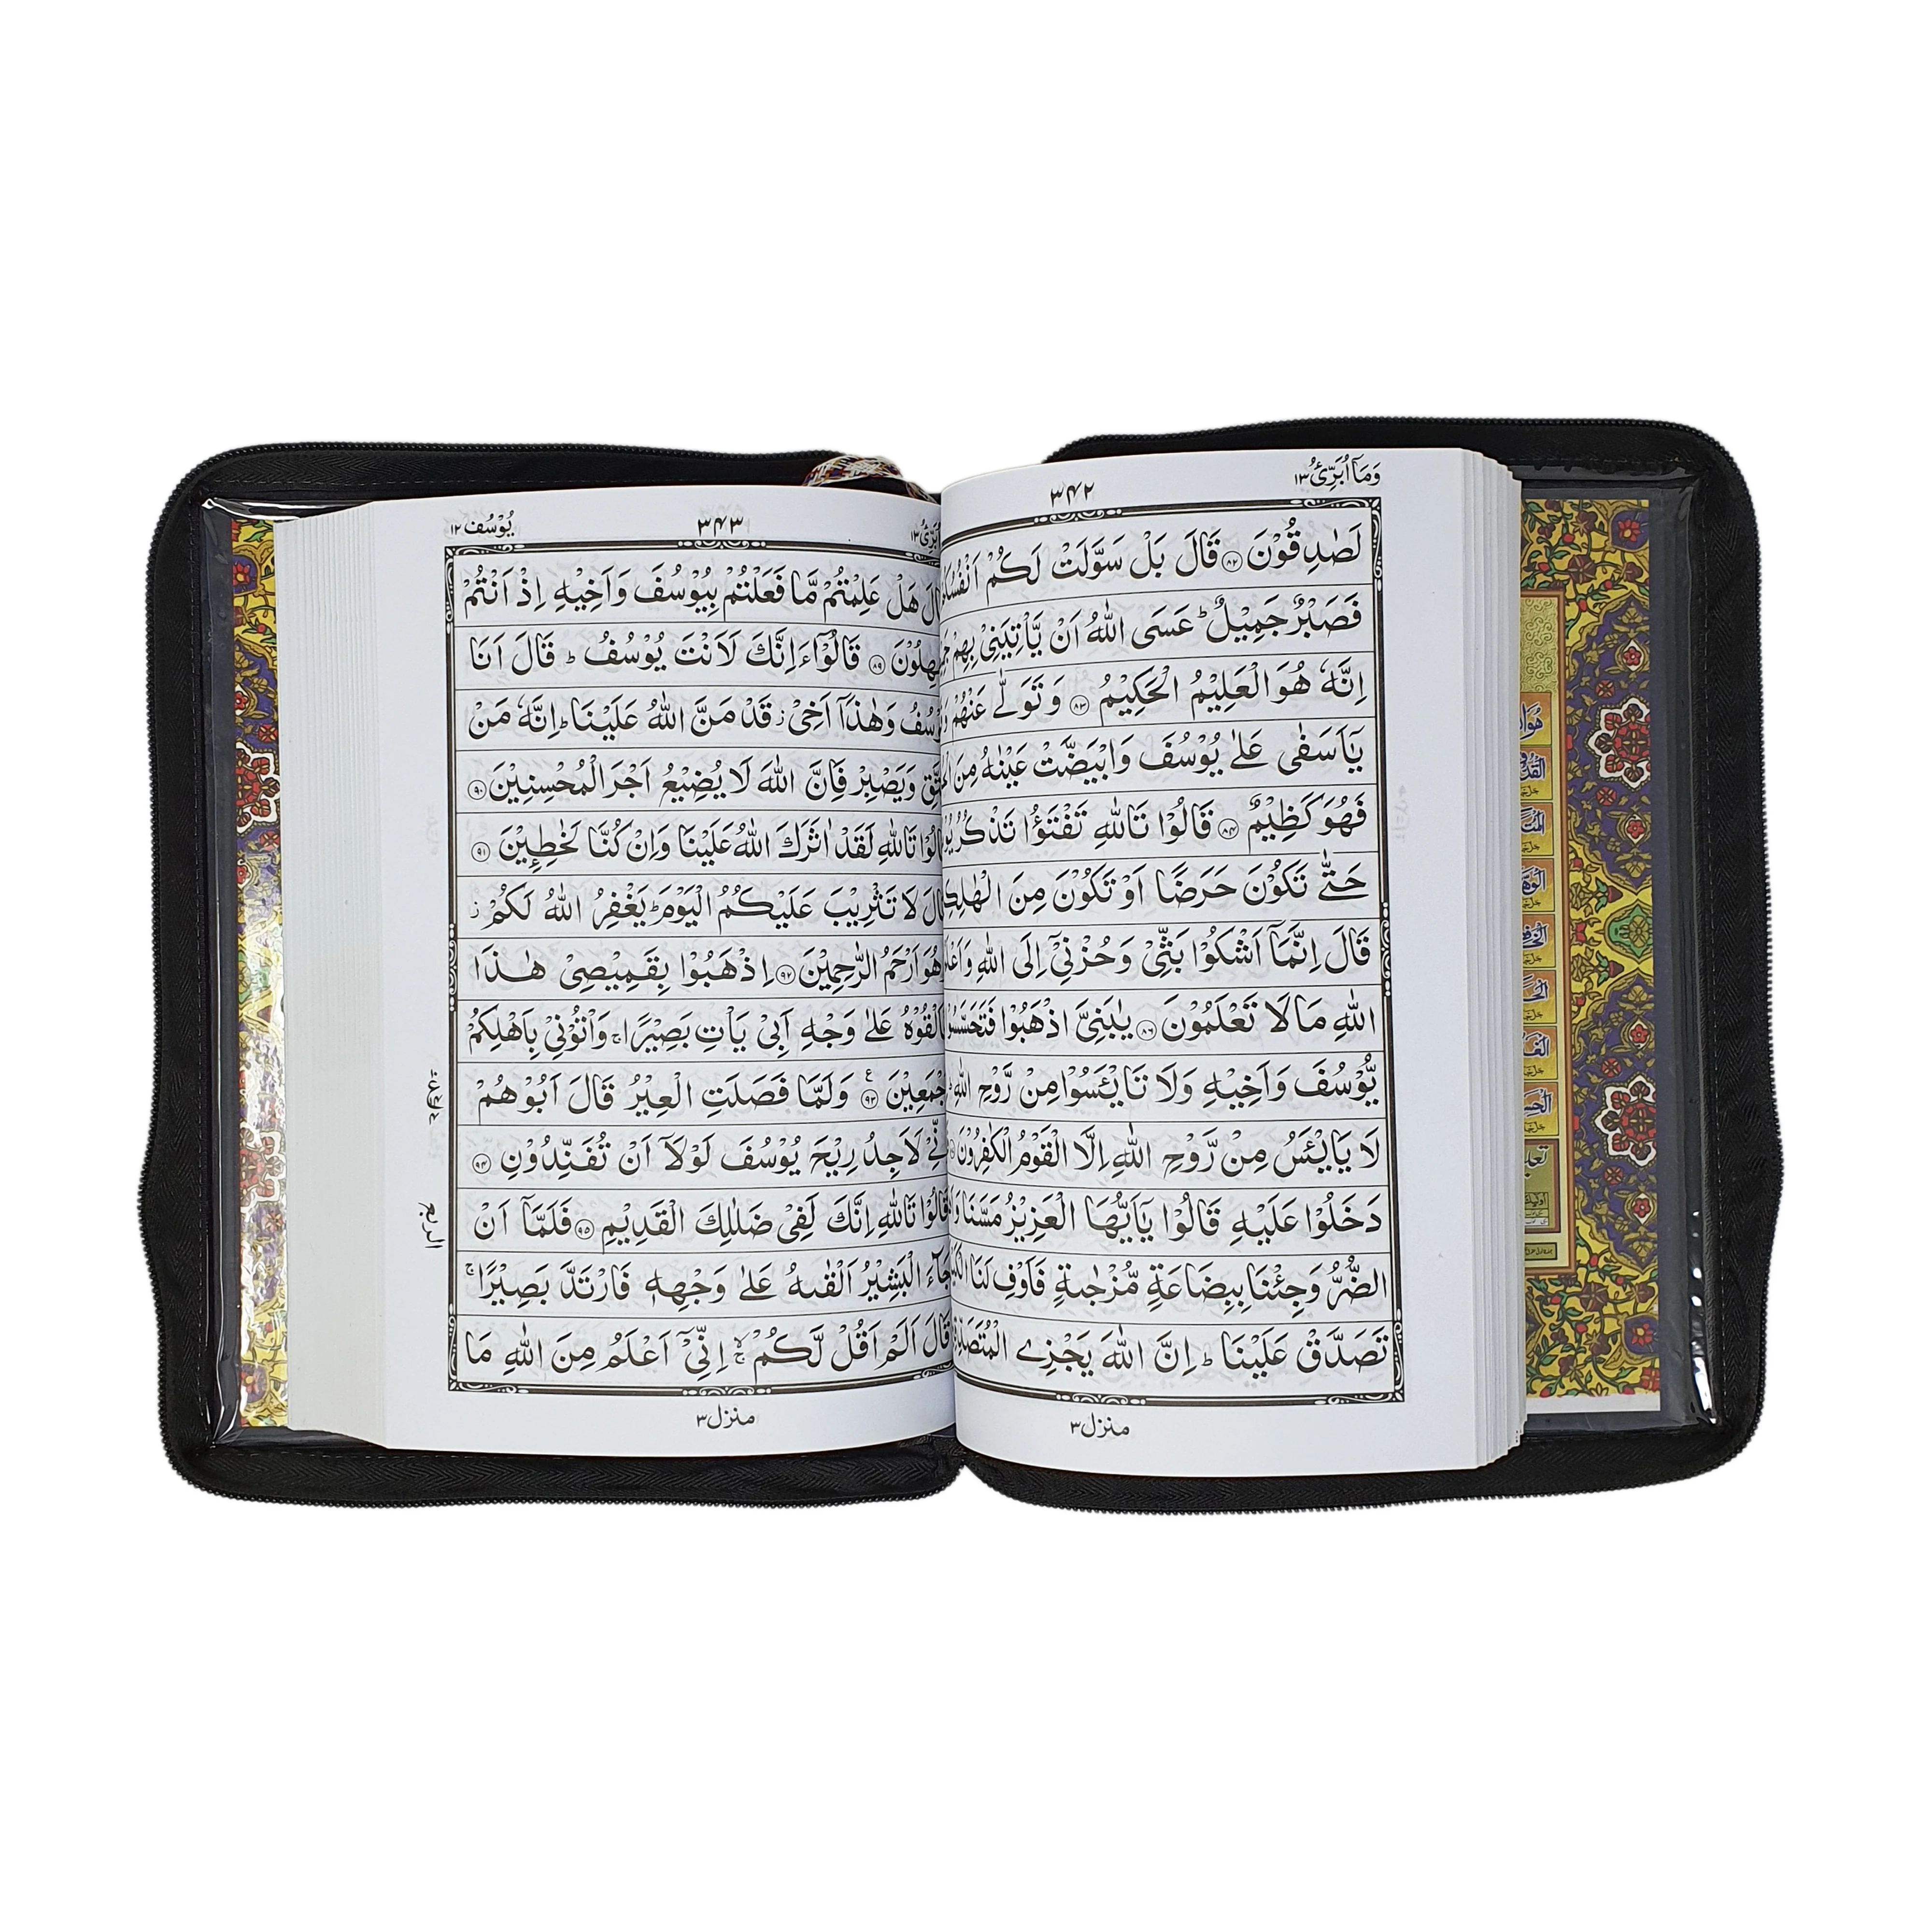 وَمَآ اُبَرِّئُ ١٣
٣٤٢
لَصٰدِقُوْنَ ﴿٨٢﴾ قَالَ بَلْ سَوَّلَتْ لَكُمْ
فَصَبْرٌ جَمِيْلٌ ؕ عَسَى اللّٰهُ اَنْ يَّاْتِيَنِيْ بِهِمْ
اِنَّهٗ هُوَ الْعَلِيْمُ الْحَكِيْمُ ﴿٨٣﴾ وَ تَوَلّٰى عَنْهُمْ
يٰٓاَسَفٰى عَلٰى يُوْسُفَ وَابْيَضَّتْ عَيْنٰهُ مِنَ
فَهُوَ كَظِيْمٌ ﴿٨٤﴾ قَالُوْا تَاللّٰهِ تَفْتَؤُا تَذْكُرُ
حَتّٰى تَكُوْنَ حَرَضًا اَوْ تَكُوْنَ مِنَ
قَالَ اِنَّمَآ اَشْكُوْا بَثِّيْ وَحُزْنِيْٓ اِلَى اللّٰهِ
اللّٰهِ مَا لَا تَعْلَمُوْنَ ﴿٨٦﴾ يٰبَنِيَّ اذْهَبُوْا
يُّوْسُفَ وَاَخِيْهِ وَلَا تَايْـَٔسُوْا مِنْ رَّوْحِ اللّٰهِ
لَا يَايْـَٔسُ مِنْ رَّوْحِ اللّٰهِ اِلَّا الْقَوْمُ الْكٰفِرُوْنَ
دَخَلُوْا عَلَيْهِ قَالُوْا يٰٓاَيُّهَا الْعَزِيْزُ مَسَّنَا
الضُّرُّ وَجِئْنَا بِبِضَاعَةٍ مُّزْجٰىةٍ فَاَوْفِ لَنَا
تَصَدَّقْ عَلَيْنَا ؕ اِنَّ اللّٰهَ يَجْزِي
منزل ٣
٣٤٣
يُوْسُف ١٢
هَلْ عَلِمْتُمْ مَّا فَعَلْتُمْ بِيُوْسُفَ وَاَخِيْهِ اِذْ اَنْتُمْ
﴿٨٩﴾ قَالُوْٓا ءَاِنَّكَ لَاَنْتَ يُوْسُفُ ؕ قَالَ اَنَا
وَهٰذَآ اَخِيْ ز قَدْ مَنَّ اللّٰهُ عَلَيْنَا ؕ اِنَّهٗ مَنْ
وَيَصْبِرْ فَاِنَّ اللّٰهَ لَا يُضِيْعُ اَجْرَ الْمُحْسِنِيْنَ ﴿٩٠﴾
تَاللّٰهِ لَقَدْ اٰثَرَكَ اللّٰهُ عَلَيْنَا وَاِنْ كُنَّا لَخٰطِـِٕيْنَ ﴿٩١﴾
لَا تَثْرِيْبَ عَلَيْكُمُ الْيَوْمَ ؕ يَغْفِرُ اللّٰهُ لَكُمْ ز
هُوَ اَرْحَمُ الرّٰحِمِيْنَ ﴿٩٢﴾ اِذْهَبُوْا بِقَمِيْصِيْ هٰذَا
عَلٰى وَجْهِ اَبِيْ يَاْتِ بَصِيْرًا ج وَاْتُوْنِيْ بِاَهْلِكُمْ
﴿٩٣﴾ وَلَمَّا فَصَلَتِ الْعِيْرُ قَالَ اَبُوْهُمْ
لَاَجِدُ رِيْحَ يُوْسُفَ لَوْلَآ اَنْ تُفَنِّدُوْنِ ﴿٩٤﴾
قَالُوْا تَاللّٰهِ اِنَّكَ لَفِيْ ضَلٰلِكَ الْقَدِيْمِ ﴿٩٥﴾ فَلَمَّآ اَنْ
جَآءَ الْبَشِيْرُ اَلْقٰىهُ عَلٰى وَجْهِهٖ فَارْتَدَّ بَصِيْرًا ج
قَالَ اَلَمْ اَقُلْ لَّكُمْ اِنِّيْٓ اَعْلَمُ مِنَ اللّٰهِ مَا
الربع
منزل ٣